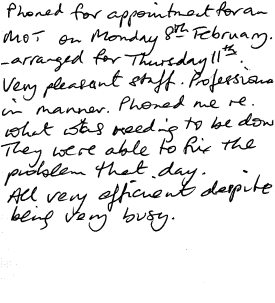 Phoned for appointment for an
MOT on Monday 8th February.
-arranged for Thursday 11th.
Very pleasant staff. Professiona
in manner. Phoned me re.
what was needing to be don
They were able to fix the
problem that day.
All very efficient despite
being very busy.